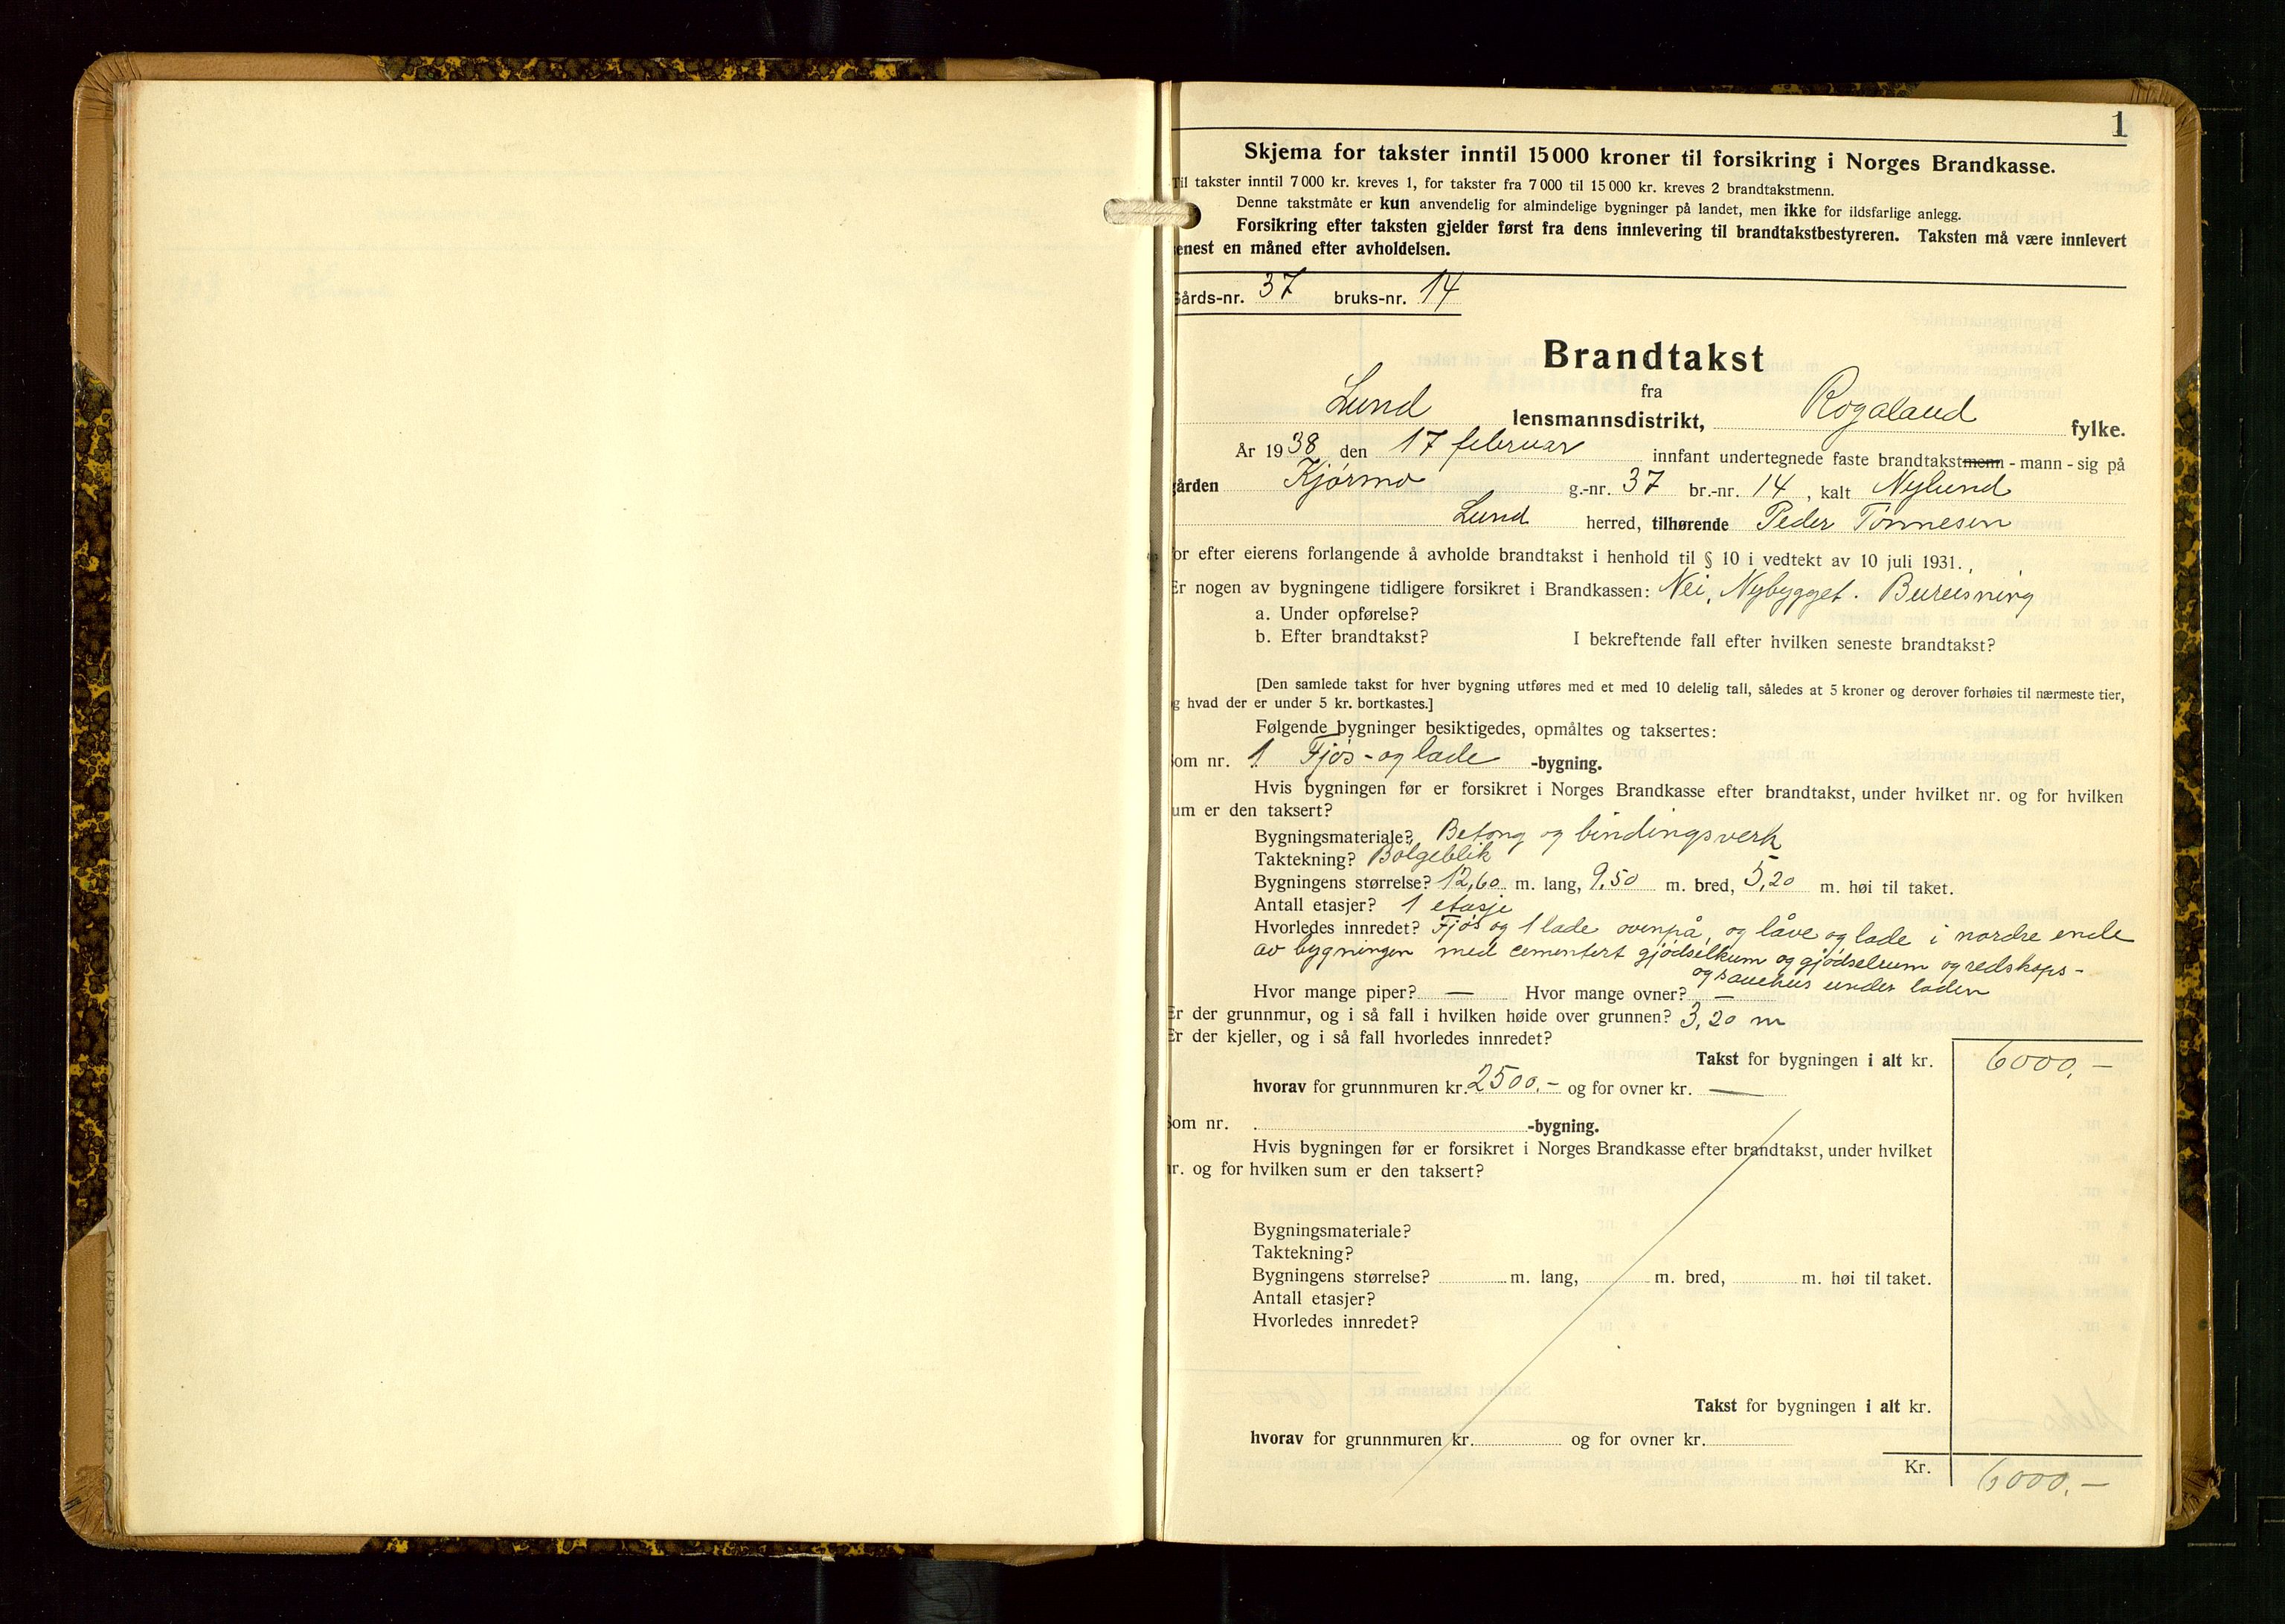 1
Skjema for takster inntil 15 000 kroner til forsikring i Norges Brandkasse.
Til takster inntil 7 000 kr. kreves 1, for takster fra 7 000 til 15 000 kr. kreves 2 brandtakstmenn.
Denne takstmåte er kun anvendelig for almindelige bygninger på landet, men ikke for ildsfarlige anlegg.
Forsikring efter taksten gjelder først fra dens innlevering til brandtakstbestyreren. Taksten må være innlevert
enest en måned efter avholdelsen.
Gårds-nr. 37 bruks-nr. 14
Brandtakst
fra
Lund lensmannsdistrikt, Rogaland fylke.
År 1938 den 17 februar innfant undertegnede faste brandtakstmenn - mann - sig på
gården Kjørmo g.-nr. 37 br.-nr. 14, kalt Nylund
Lund herred, tilhørende Peder Tønnesen
or efter eierens forlangende å avholde brandtakst i henhold til § 10 i vedtekt av 10 juli 1931.,
Er nogen av bygningene tidligere forsikret i Brandkassen: Nei, Nybygget. Bureisning
a. Under opførelse?
b. Efter brandtakst? I bekreftende fall efter hvilken seneste brandtakst?
[Den samlede takst for hver bygning utføres med et med 10 delelig tall, således at 5 kroner og derover forhøies til nærmeste tier,
g hvad der er under 5 kr. bortkastes.]
Følgende bygninger besiktigedes, opmåltes og taksertes:
om nr. 1 Fjøs- og lade -bygning.
Hvis bygningen før er forsikret i Norges Brandkasse efter brandtakst, under hvilket nr. og for hvilken
um er den taksert?
Bygningsmateriale? Betong og bindingsverk
Taktekning? Bølgeblik
Bygningens størrelse? 12,60 m. lang, 9,50 m. bred, 5,20 m. høi til taket.
Antall etasjer? 1 etasje
Hvorledes innredet? Fjøs og 1 lade ovenpå, og låve og lade i nordre ende
av bygningen med cementert gjødselkum og gjødselrum og redskaps-
og sauehus under laden
Hvor mange piper? — Hvor mange ovner? —
Er der grunnmur, og i så fall i hvilken høide over grunnen? 3,20 m
Er der kjeller, og i så fall hvorledes innredet?
Takst for bygningen i alt kr. 6000,-
hvorav for grunnmuren kr. 2500,- og for ovner kr. —
om nr. -bygning.
Hvis bygningen før er forsikret i Norges Brandkasse efter brandtakst, under hvilket
r. og for hvilken sum er den taksert?
Bygningsmateriale?
Taktekning?
Bygningens størrelse? m. lang, m. bred, m. høi til taket.
Antall etasjer?
Hvorledes innredet?
Takst for bygningen i alt kr.
hvorav for grunnmuren kr. og for ovner kr.
Kr. 6000,-